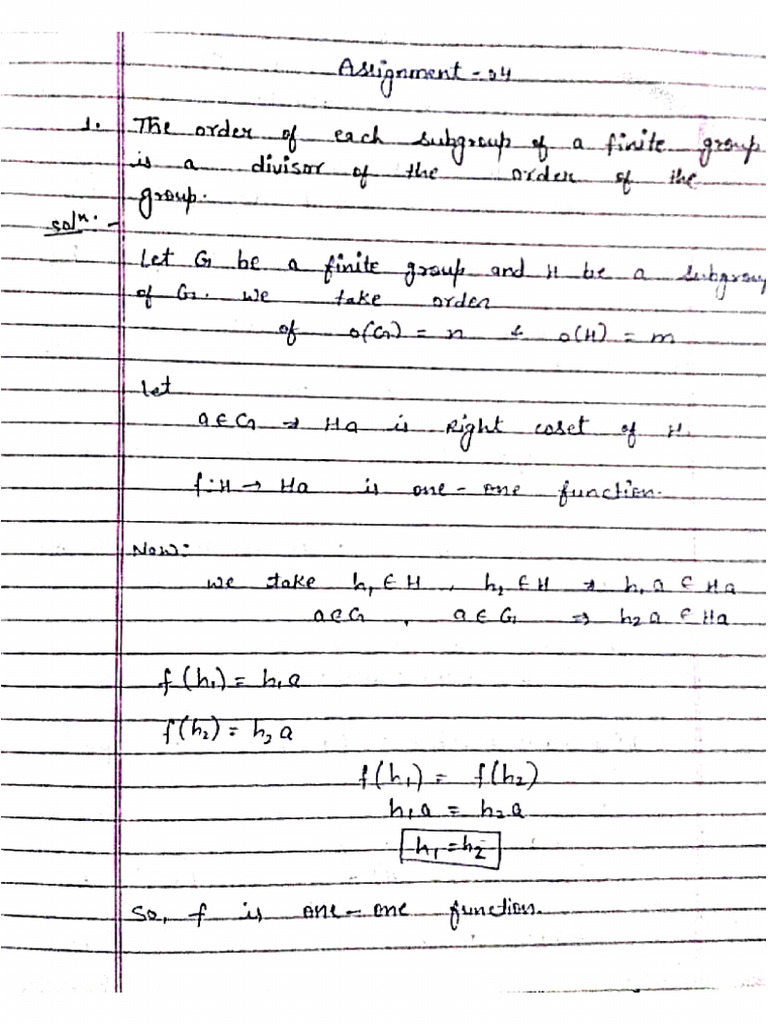 Assignment - 04
1. The order of each subgroup of a finite group
is a divisor of the order of the
group.
solⁿ. -
Let G be a finite group and H be a subgroup
of G. we take order
of o(G) = n & o(H) = m
Let
a∈G → Ha is Right coset of H.
f:H → Ha is one-one function.
Now:
we take h₁∈H, h₂∈H → h₁a∈Ha
a∈G, a∈G ⇒ h₂a∈Ha
f(h₁) = h₁a
f(h₂) = h₂a
f(h₁) = f(h₂)
h₁a = h₂a
h₁=h₂
So, f is one-one function.